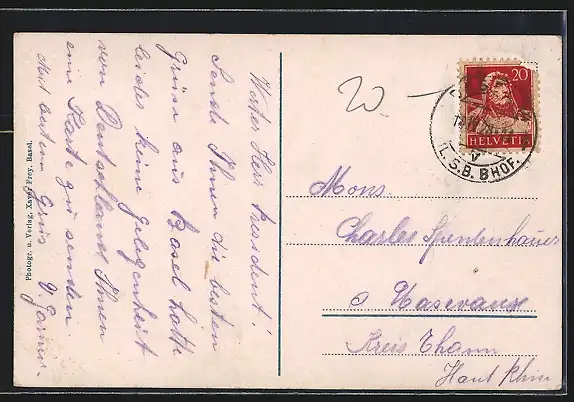 Werter Herr President!
Sende Ihnen die besten
Grüsse aus Basel hatte
leider keine Gelegenheit
von Deutschland Ihnen
eine Karte zu senden
Mit bestem Gruss
Photogr. u. Verlag, Xaver Frey, Basel.
20
HELVETIA
L.S.B. BHOF.
Mons.
Charles Spenlenhauer
Masevaux
Kreis Thann
Haut Rhin